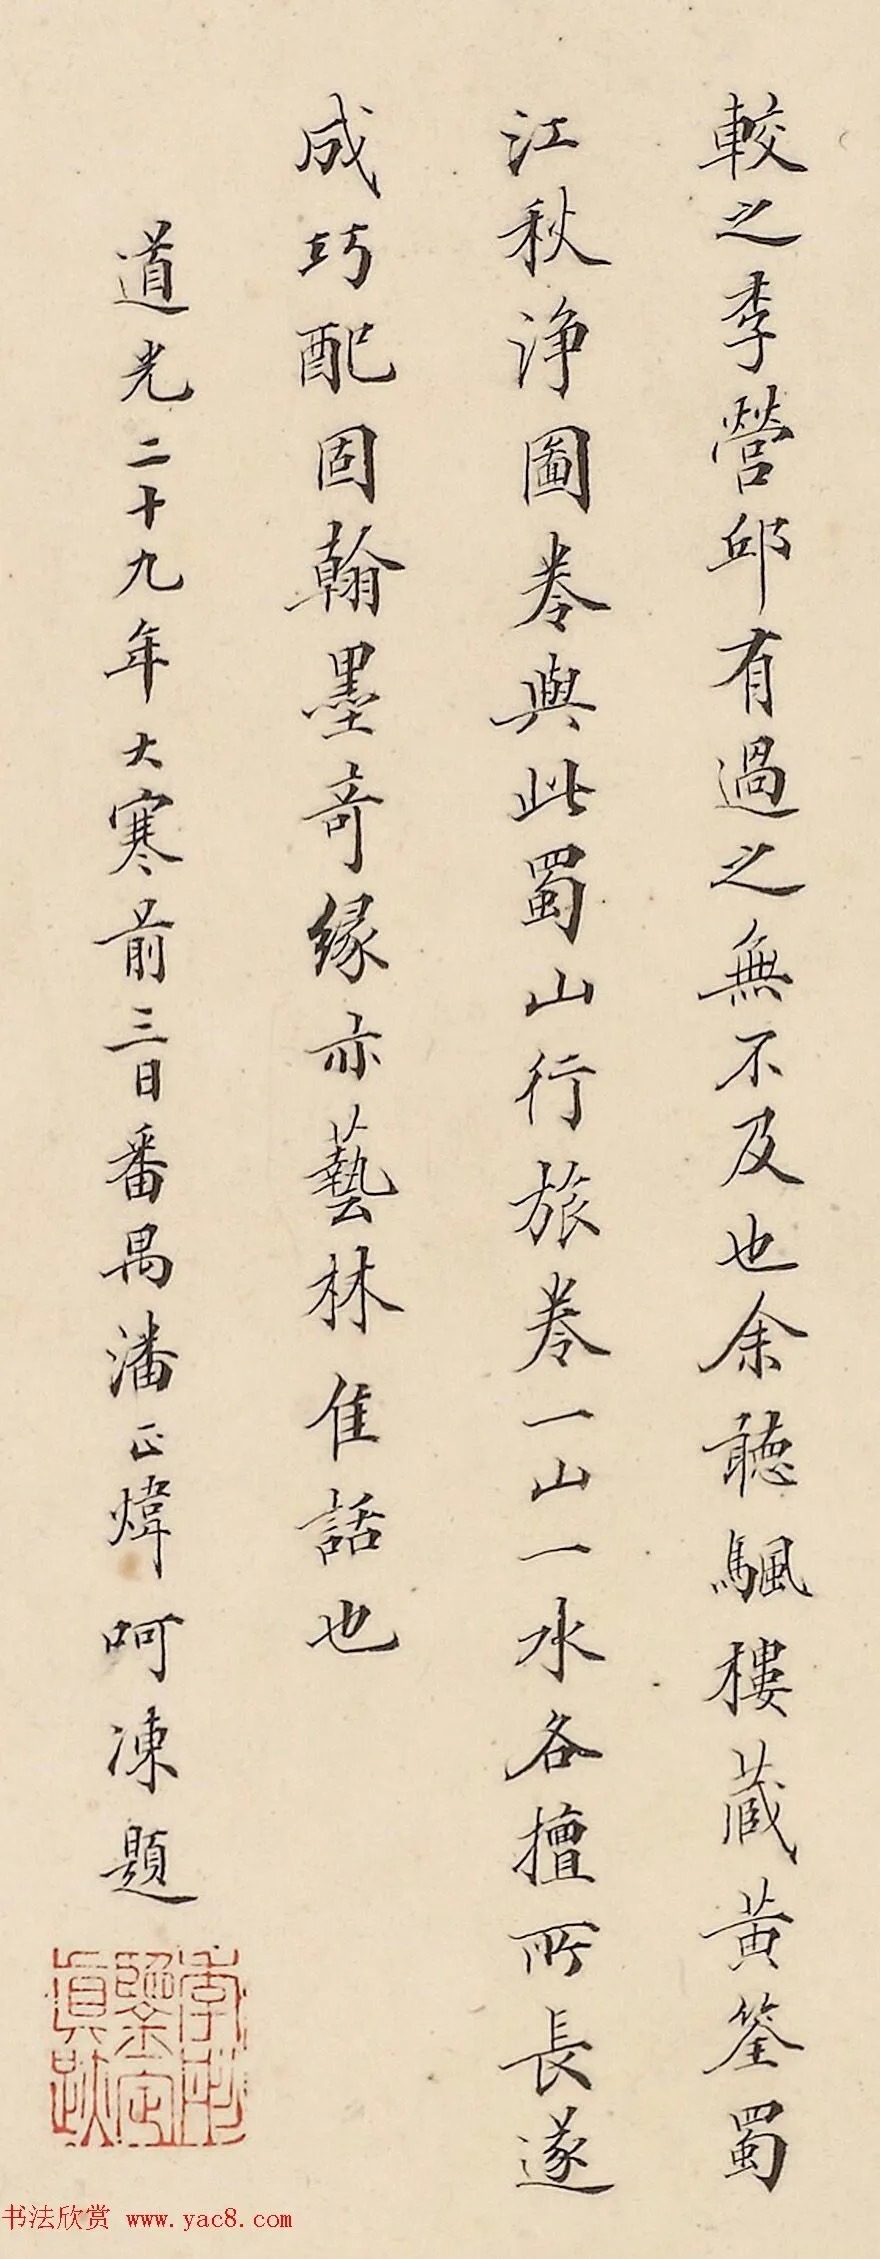 較之李營邱有過之無不及也余聽颿樓蔵黃筌蜀
江秋浄圖卷與此蜀山行旅卷一山一水各擅所長遂
成巧配固翰墨奇緣亦藝林佳話也
道光二十九年大寒前三日番禺潘正煒呵凍題
季彤鑒定真跡
书法欣赏 www.yac8.com